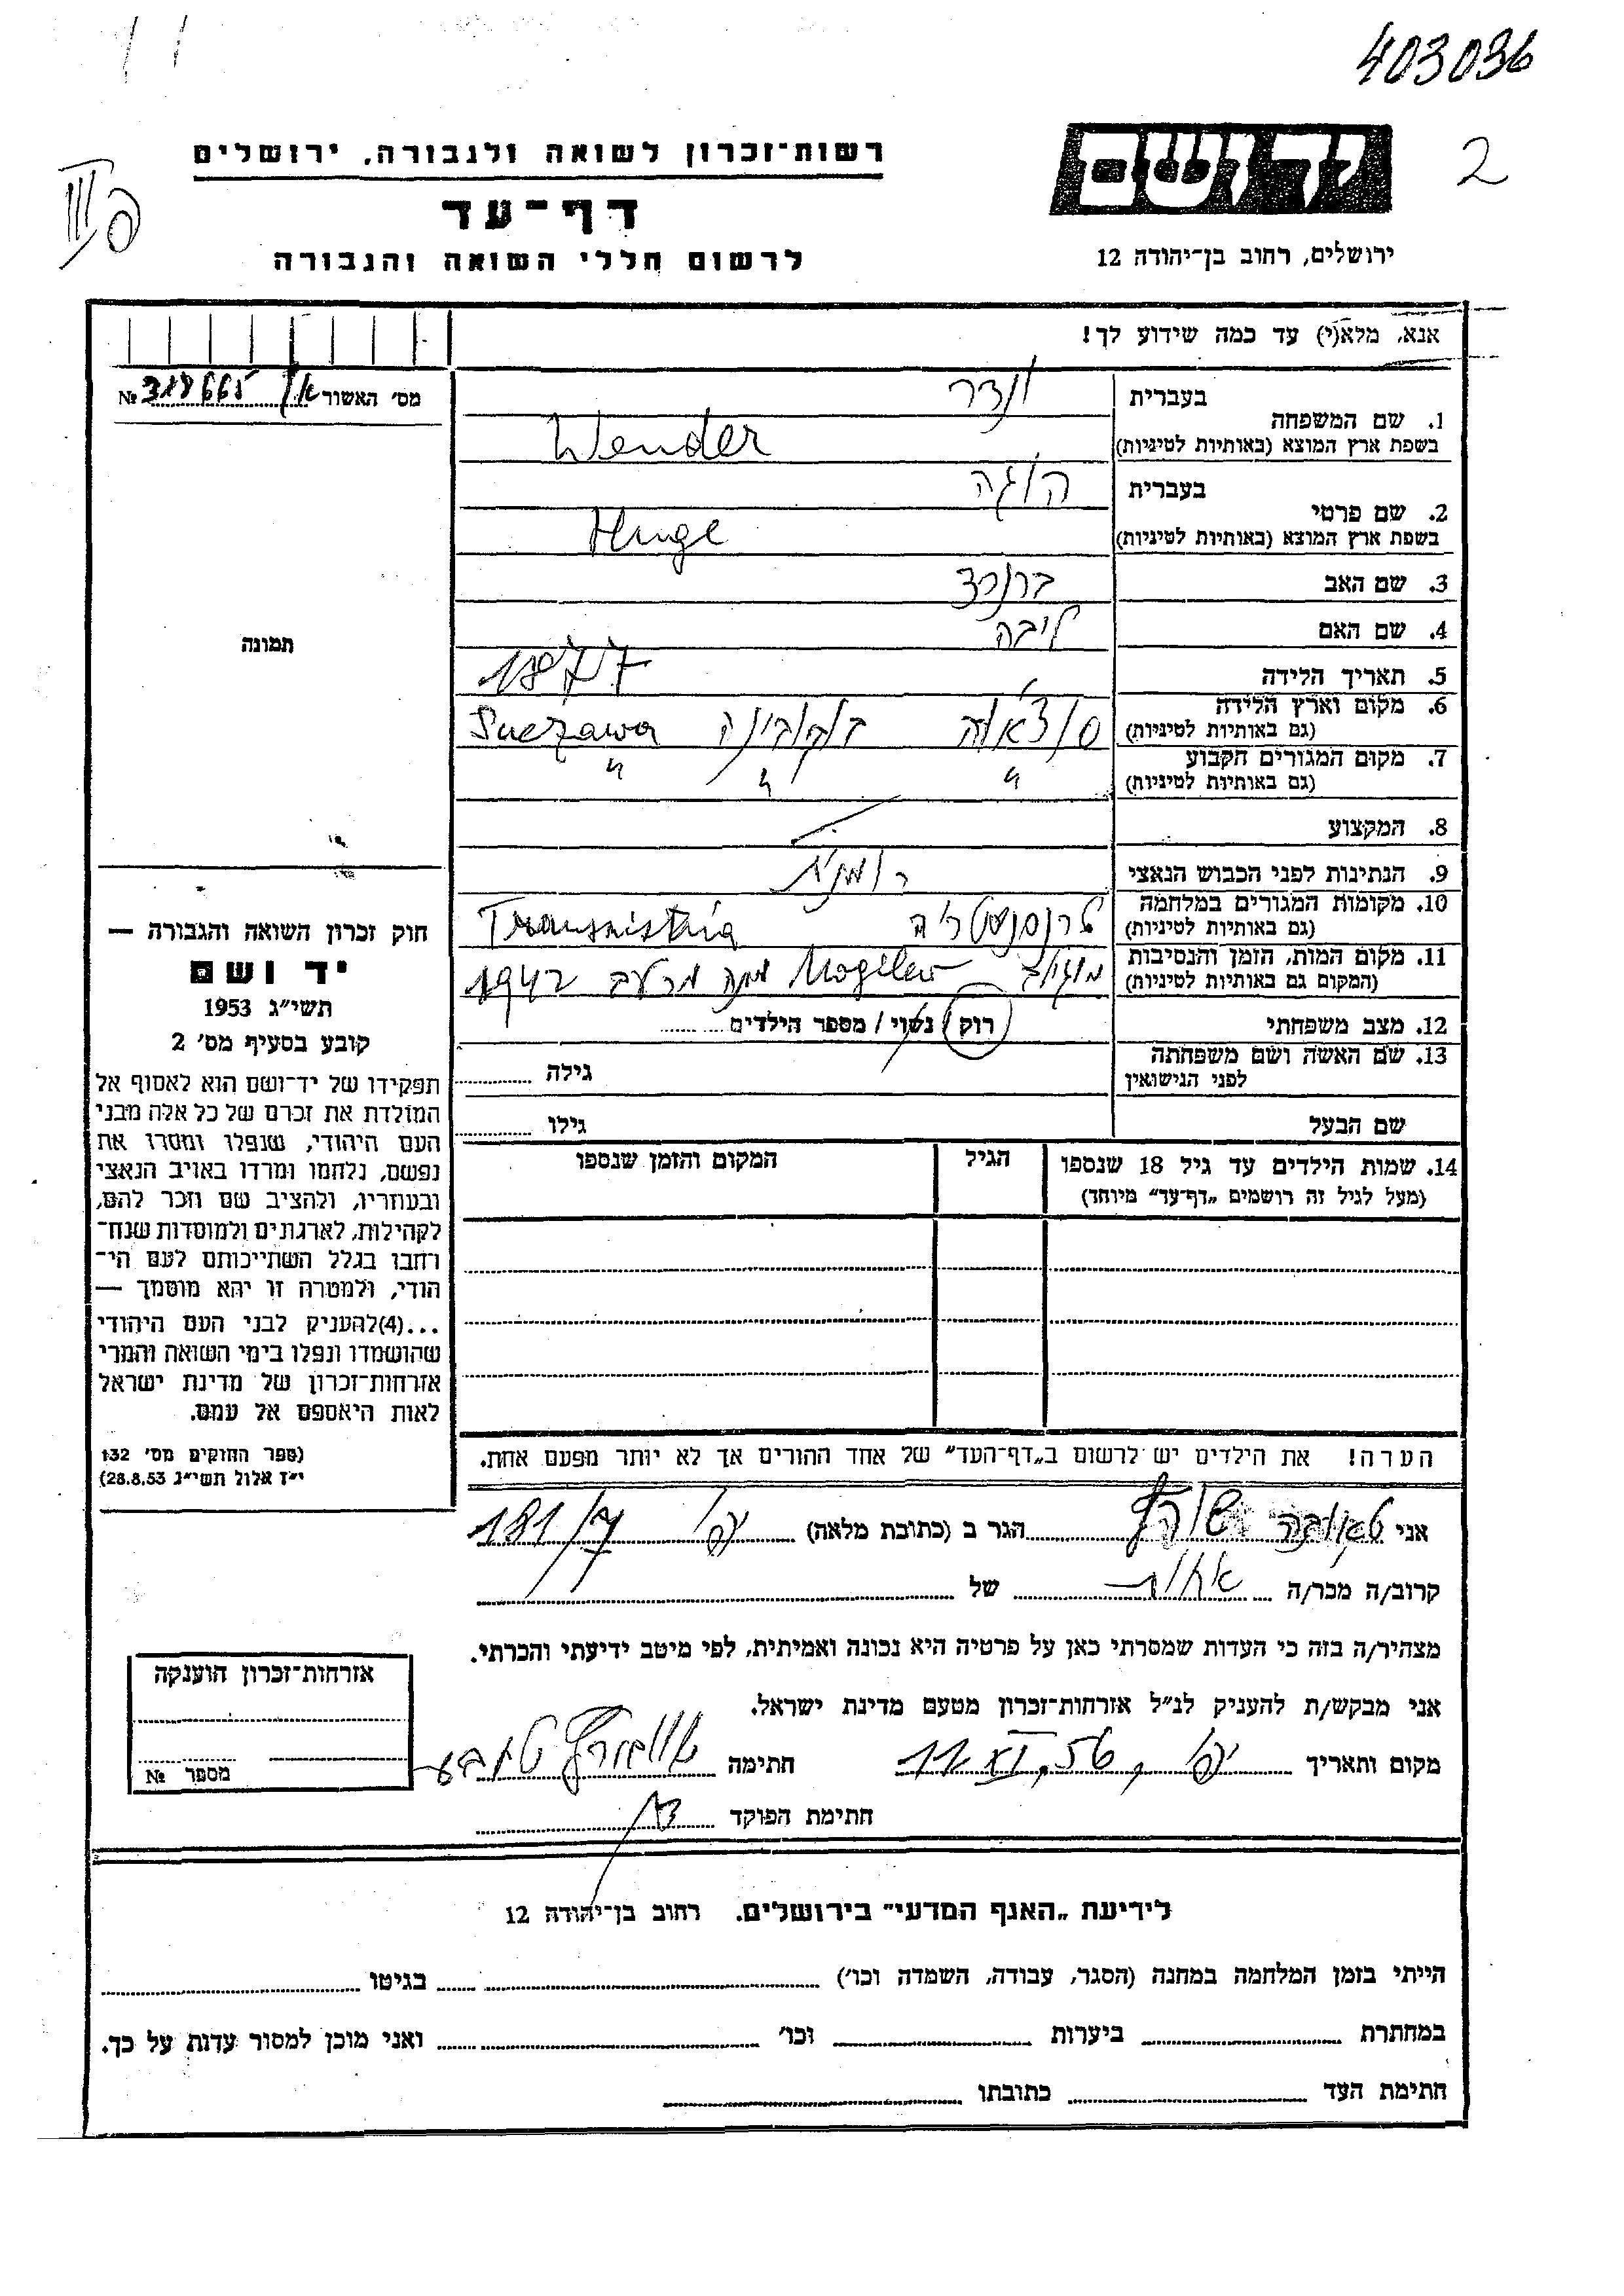 403036
2
יד ושם
ירושלים, רחוב בן־יהודה 12
רשות־זכרון לשואה ולגבורה, ירושלים
דף־עד
לרשום חללי השואה והגבורה
III
אנא, מלא(י) עד כמה שידוע לך!
מס' האשור №
תמונה
בעברית ונדר
1. שם המשפחה
בשפת ארץ המוצא (באותיות לטיניות) Wender
בעברית הוגה
2. שם פרטי
בשפת ארץ המוצא (באותיות לטיניות) Huge
3. שם האב ברנרד
4. שם האם ליבה
5. תאריך הלידה 1877
6. מקום וארץ הלידה
(גם באותיות לטיניות) בוקובינה Suczawa
7. מקום המגורים הקבוע
(גם באותיות לטיניות) " " "
8. המקצוע
9. הנתינות לפני הכבוש הנאצי רומנית
10. מקומות המגורים במלחמה
(גם באותיות לטיניות) Transnistria
11. מקום המות, הזמן והנסיבות
(המקום גם באותיות לטיניות) Mogilew מתה מרעב 1942
12. מצב משפחתי רוק / נשוי / מספר הילדים
13. שם האשה ושם משפחתה
לפני הנישואין גילה
שם הבעל גילו
14. שמות הילדים עד גיל 18 שנספו הגיל המקום והזמן שנספו
(מעל לגיל זה רושמים „דף־עד" מיוחד)
הערה! את הילדים יש לרשום ב„דף־העד" של אחד ההורים אך לא יותר מפעם אחת.
חוק זכרון השואה והגבורה —
יד ושם
תשי"ג 1953
קובע בסעיף מס' 2
תפקידו של יד־ושם הוא לאסוף אל
המולדת את זכרם של כל אלה מבני
העם היהודי, שנפלו ומסרו את
נפשם, נלחמו ומרדו באויב הנאצי
ובעוזריו, ולהציב שם וזכר להם,
לקהילות, לארגונים ולמוסדות שנח־
רבו בגלל השתייכותם לעם הי־
הודי, ולמטרה זו יהא מוסמך —
...(4)להעניק לבני העם היהודי
שהושמדו ונפלו בימי השואה והמרי
אזרחות־זכרון של מדינת ישראל
לאות היאספם אל עמם.
(ספר החוקים מס' 132
י"ז אלול תשי"ג 28.8.53)
אני הגר ב (כתובת מלאה) יפו 181/7
קרוב/ה מכר/ה אחות של
מצהיר/ה בזה כי העדות שמסרתי כאן על פרטיה היא נכונה ואמיתית, לפי מיטב ידיעתי והכרתי.
אני מבקש/ת להעניק לנ"ל אזרחות־זכרון מטעם מדינת ישראל.
מקום ותאריך יפו, 11 XI. 56 חתימה
חתימת הפוקד
אזרחות־זכרון הוענקה
מספר №
לידיעת „האגף המדעי" בירושלים. רחוב בן־יהודה 12
הייתי בזמן המלחמה במחנה (הסגר, עבודה, השמדה וכו') בגיטו
במחתרת ביערות וכו' ואני מוכן למסור עדות על כך.
חתימת העד כתובתו